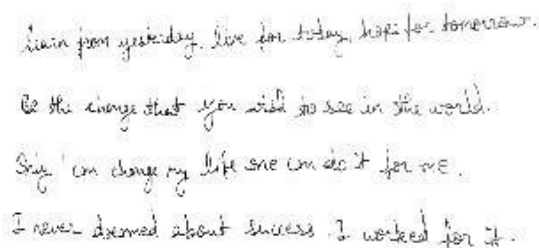 Learn from yesterday, live for today, hope for tomorrow.
Be the change that you wish to see in the world.
Only I can change my life one can do it for me.
I never dreamed about success. I worked for it.